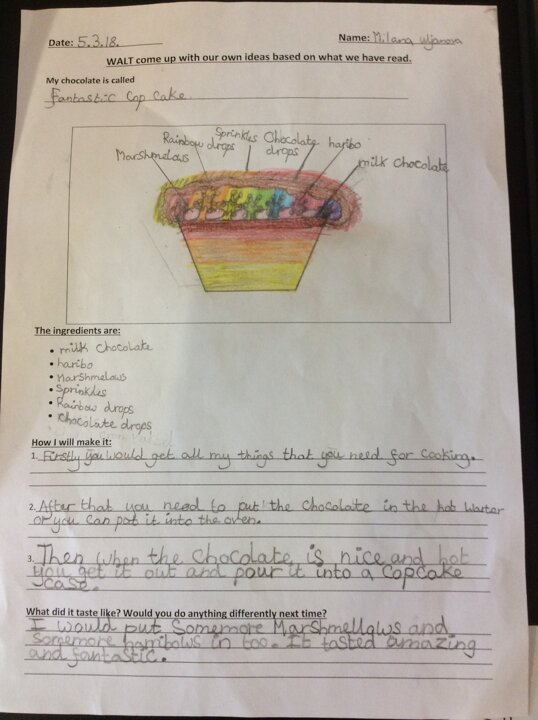 Date: 5.3.18.
Name: Milana
WALT come up with our own ideas based on what we have read.
My chocolate is called
Fantastic Cop Cake.
Marshmelows
Rainbow drops
Sprinkles
Chocolate drops
haribo
milk chocolate
The ingredients are:
• milk Chocolate
• haribo
• Marshmelows
• Sprinkles
• Rainbow drops
• Chocolate drops
How I will make it:
1. Firstly you would get all my things that you need for cooking.
2. After that you need to put the chocolate in the hot warter
or you can pot it into the oven.
3. Then when the chocolate is nice and hot
you get it out and pour it into a copcake
case.
What did it taste like? Would you do anything differently next time?
I would put Somemore Marshmellows and
somemore in too. It tasted amazing
and fantastic.